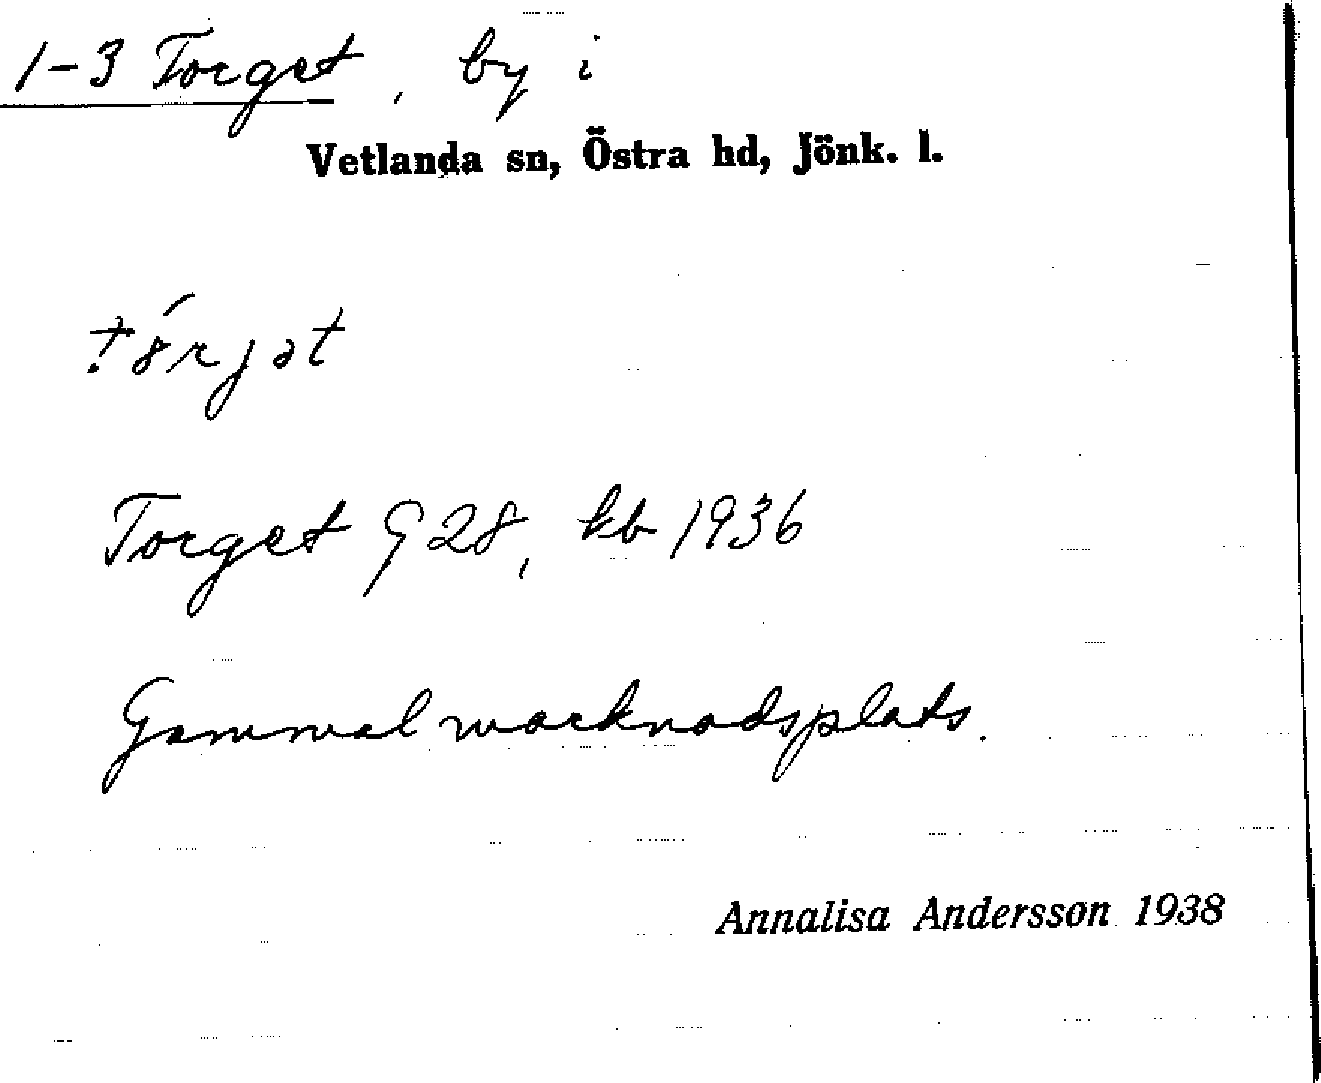 1-3 Torget, by i
Vetlanda sn, Östra hd, Jönk. l.
Torget G 28, kb 1936
Gammal marknadsplats.
Annalisa Andersson 1938